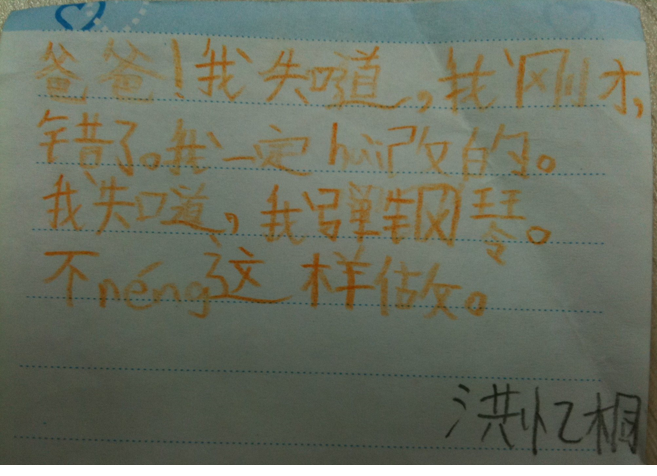 爸爸！我失口道，我刚才，
错了。我一定huì改的。
我失口道，我弹钢琴。
不néng这样做。
洪忆桐